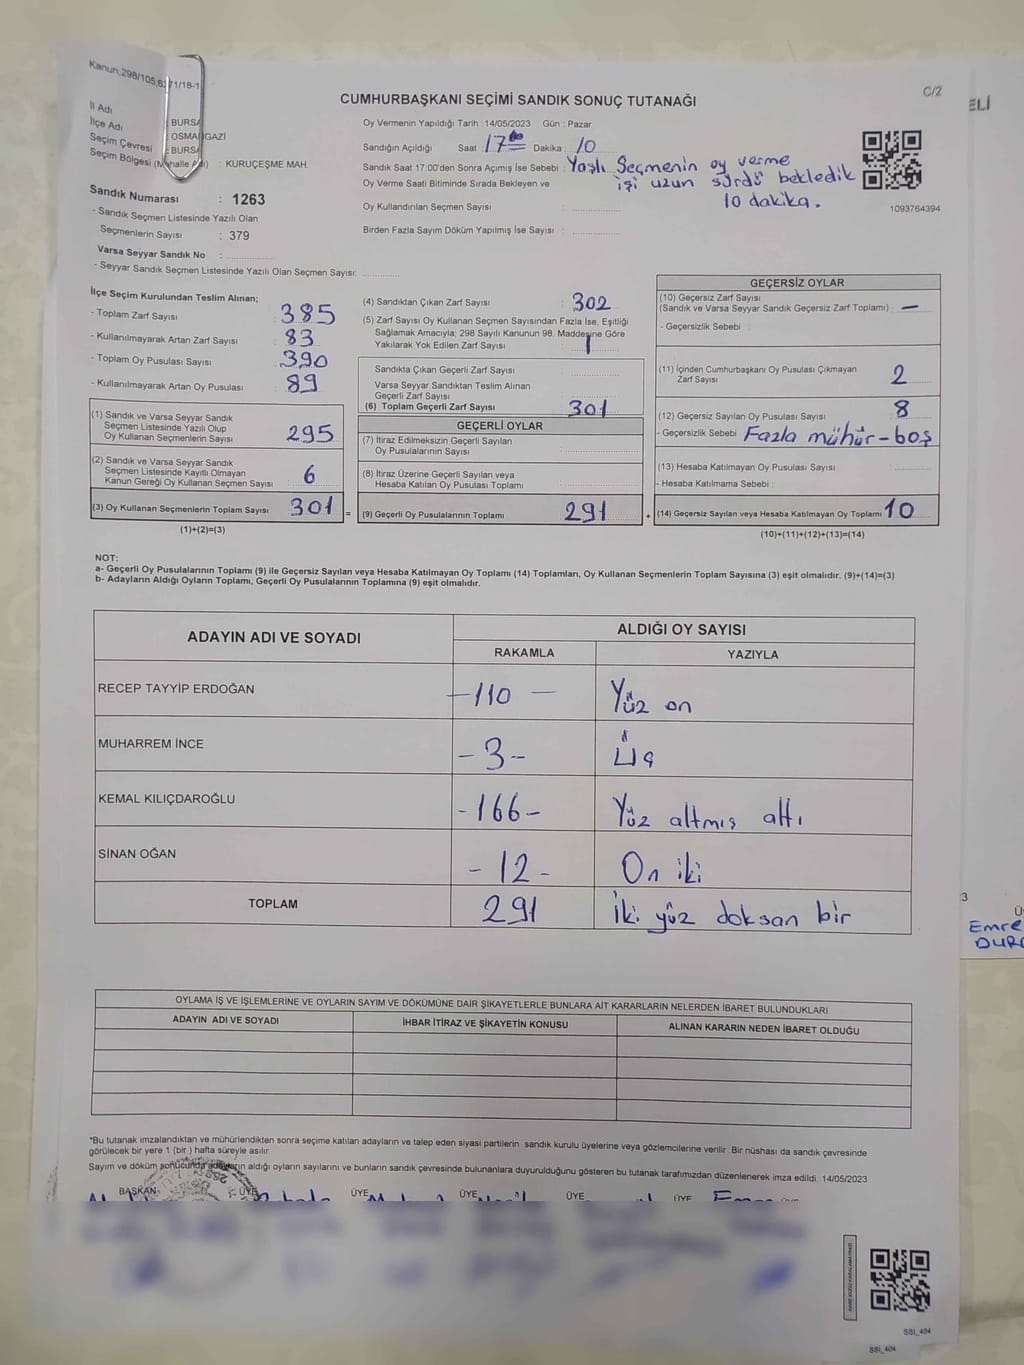 Kanun:298/105,6271/18-1
C/2
ELİ
CUMHURBAŞKANI SEÇİMİ SANDIK SONUÇ TUTANAĞI
İl Adı : BURSA
İlçe Adı : OSMANGAZİ
Seçim Çevresi : BURSA
Seçim Bölgesi (Mahalle Adı) : KURUÇEŞME MAH.
Sandık Numarası : 1263
- Sandık Seçmen Listesinde Yazılı Olan
Seçmenlerin Sayısı : 379
Varsa Seyyar Sandık No :
- Seyyar Sandık Seçmen Listesinde Yazılı Olan Seçmen Sayısı:
Oy Vermenin Yapıldığı Tarih :14/05/2023 Gün : Pazar
Sandığın Açıldığı Saat 17:00 Dakika : 10
Sandık Saat 17:00'den Sonra Açımış İse Sebebi : Yaşlı Seçmenin oy verme
işi uzun sürdü bekledik
10 dakika.
Oy Verme Saati Bitiminde Sırada Bekleyen ve
Oy Kullandırılan Seçmen Sayısı :
Birden Fazla Sayım Döküm Yapılmış İse Sayısı :
1093764394
İlçe Seçim Kurulundan Teslim Alınan;
- Toplam Zarf Sayısı : 385
- Kullanılmayarak Artan Zarf Sayısı : 83
- Toplam Oy Pusulası Sayısı : 390
- Kullanılmayarak Artan Oy Pusulası : 89
(1) Sandık ve Varsa Seyyar Sandık
Seçmen Listesinde Yazılı Olup
Oy Kullanan Seçmenlerin Sayısı : 295
(2) Sandık ve Varsa Seyyar Sandık
Seçmen Listesinde Kayıtlı Olmayan
Kanun Gereği Oy Kullanan Seçmen Sayısı : 6
(3) Oy Kullanan Seçmenlerin Toplam Sayısı : 301
(1)+(2)=(3)
(4) Sandıktan Çıkan Zarf Sayısı : 302
(5) Zarf Sayısı Oy Kullanan Seçmen Sayısından Fazla İse, Eşitliği
Sağlamak Amacıyla; 298 Sayılı Kanunun 98. Maddesine Göre
Yakılarak Yok Edilen Zarf Sayısı : 1
Sandıkta Çıkan Geçerli Zarf Sayısı :
Varsa Seyyar Sandıktan Teslim Alınan
Geçerli Zarf Sayısı :
(6) Toplam Geçerli Zarf Sayısı : 301
GEÇERLİ OYLAR
(7) İtiraz Edilmeksizin Geçerli Sayılan
Oy Pusulalarının Sayısı :
(8) İtiraz Üzerine Geçerli Sayılan veya
Hesaba Katılan Oy Pusulası Toplamı :
= (9) Geçerli Oy Pusulalarının Toplamı : 291
GEÇERSİZ OYLAR
(10) Geçersiz Zarf Sayısı
(Sandık ve Varsa Seyyar Sandık Geçersiz Zarf Toplamı) : —
- Geçersizlik Sebebi :
(11) İçinden Cumhurbaşkanı Oy Pusulası Çıkmayan
Zarf Sayısı : 2
(12) Geçersiz Sayılan Oy Pusulası Sayısı : 8
- Geçersizlik Sebebi : Fazla mühür-boş
(13) Hesaba Katılmayan Oy Pusulası Sayısı :
- Hesaba Katılmama Sebebi :
+ (14) Geçersiz Sayılan veya Hesaba Katılmayan Oy Toplamı : 10
(10)+(11)+(12)+(13)=(14)
NOT:
a- Geçerli Oy Pusulalarının Toplamı (9) ile Geçersiz Sayılan veya Hesaba Katılmayan Oy Toplamı (14) Toplamları, Oy Kullanan Seçmenlerin Toplam Sayısına (3) eşit olmalıdır. (9)+(14)=(3)
b- Adayların Aldığı Oyların Toplamı, Geçerli Oy Pusulalarının Toplamına (9) eşit olmalıdır.
ADAYIN ADI VE SOYADI
ALDIĞI OY SAYISI
RAKAMLA YAZIYLA
RECEP TAYYİP ERDOĞAN -110- Yüz on
MUHARREM İNCE -3- Üç
KEMAL KILIÇDAROĞLU -166- Yüz altmış altı
SİNAN OĞAN -12- On iki
TOPLAM 291 İki yüz doksan bir
3
Ü
Emre
DUR
OYLAMA İŞ VE İŞLEMLERİNE VE OYLARIN SAYIM VE DÖKÜMÜNE DAİR ŞİKAYETLERLE BUNLARA AİT KARARLARIN NELERDEN İBARET BULUNDUKLARI
ADAYIN ADI VE SOYADI İHBAR İTİRAZ VE ŞİKAYETİN KONUSU ALINAN KARARIN NEDEN İBARET OLDUĞU
*Bu tutanak imzalandıktan ve mühürlendikten sonra seçime katılan adayların ve talep eden siyasi partilerin sandık kurulu üyelerine veya gözlemcilerine verilir. Bir nüshası da sandık çevresinde
görülecek bir yere 1 (bir ) hafta süreyle asılır.
Sayım ve döküm sonucunda adayların aldığı oyların sayılarını ve bunların sandık çevresinde bulunanlara duyurulduğunu gösteren bu tutanak tarafımızdan düzenlenerek imza edildi. 14/05/2023
BAŞKAN ÜYE ÜYE ÜYE ÜYE ÜYE ÜYE
SSI_404
SSI_404